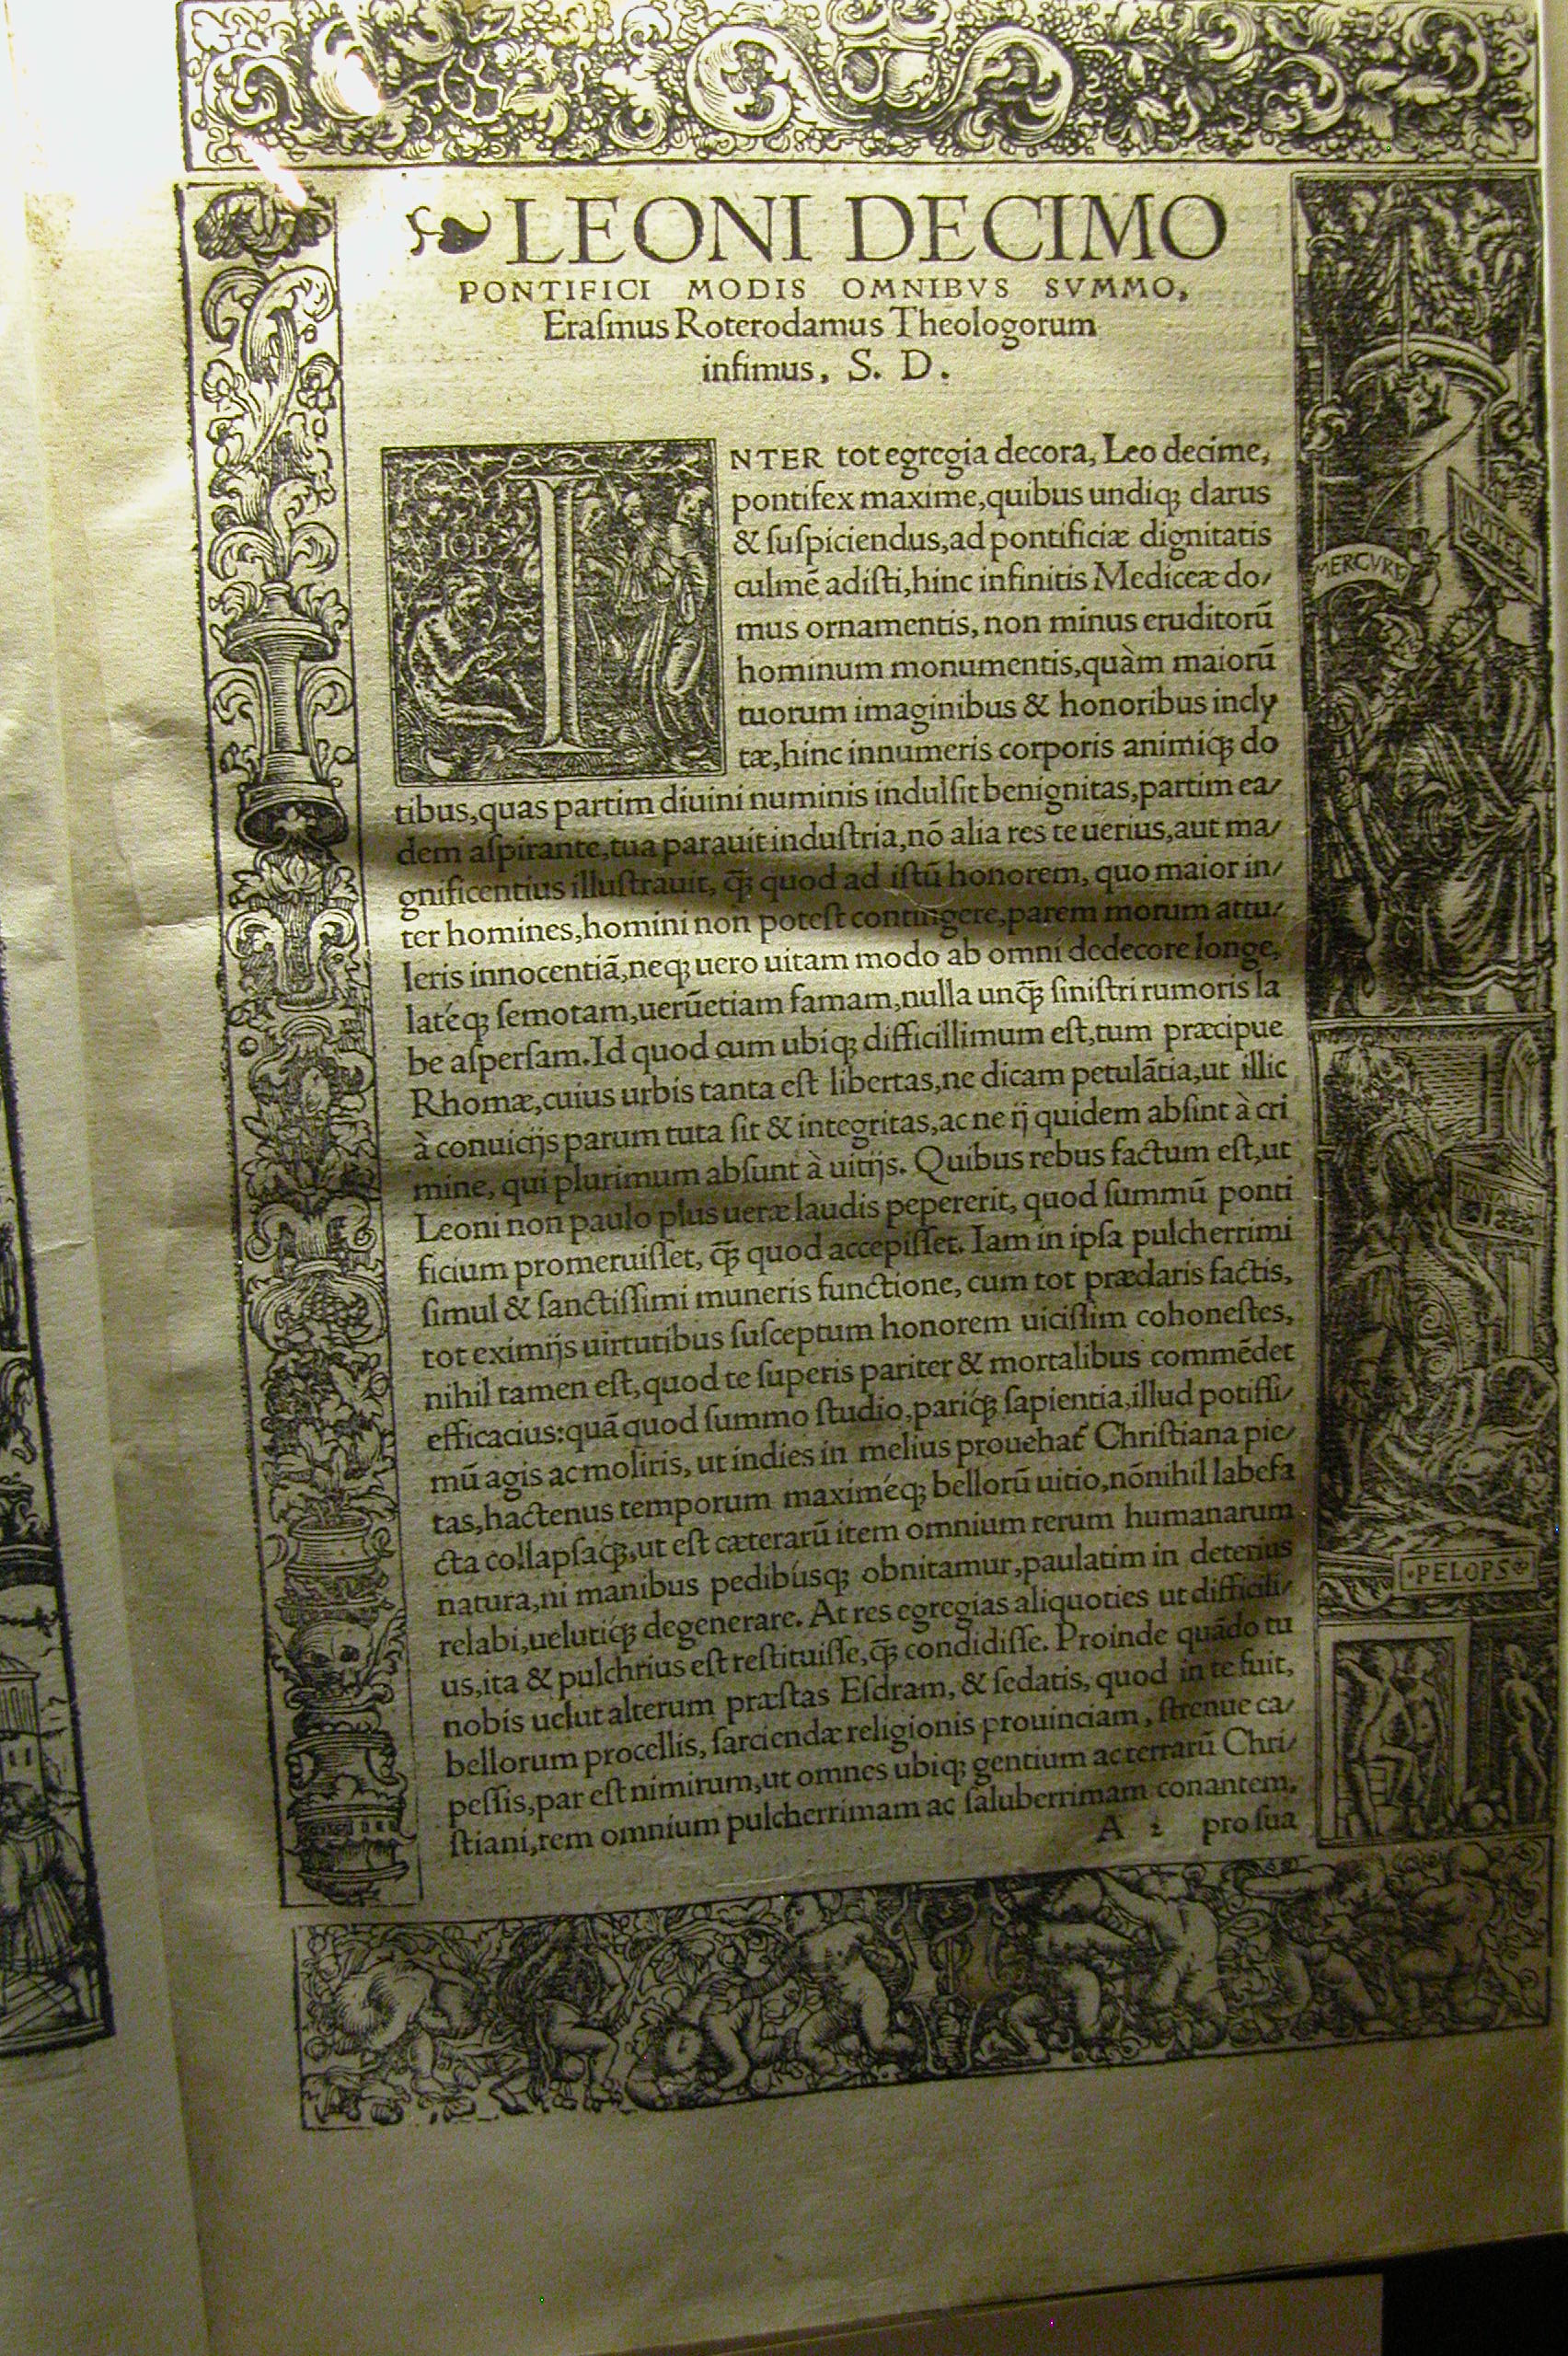 LEONI DECIMO
PONTIFICI MODIS OMNIBVS SVMMO,
Eraſmus Roterodamus Theologorum
infimus, S. D.
IOB
INTER tot egregia decora, Leo decime,
pontifex maxime, quibus undiqꝫ clarus
& ſuſpiciendus, ad pontificiæ dignitatis
culmē adiſti, hinc infinitis Mediceæ do/
mus ornamentis, non minus eruditorū
hominum monumentis, quàm maiorū
tuorum imaginibus & honoribus incly
tæ, hinc innumeris corporis animiqꝫ do
tibus, quas partim diuini numinis indulſit benignitas, partim ea/
dem aſpirante, tua parauit induſtria, nō alia res te uerius, aut ma/
gnificentius illuſtrauit, q̄ꝫ quod ad iſtū honorem, quo maior in/
ter homines, homini non poteſt contingere, parem morum attu/
leris innocentiā, neqꝫ uero uitam modo ab omni dedecore longe,
latéqꝫ ſemotam, uerūetiam famam, nulla unq̄ꝫ ſiniſtri rumoris la
be aſperſam. Id quod cum ubiqꝫ difficillimum eſt, tum præcipue
Rhomæ, cuius urbis tanta eſt libertas, ne dicam petulātia, ut illic
à conuicijs parum tuta ſit & integritas, ac ne ij quidem abſint à cri
mine, qui plurimum abſunt à uitijs. Quibus rebus factum eſt, ut
Leoni non paulo plus ueræ laudis pepererit, quod ſummū ponti
ficium promeruiſſet, q̄ꝫ quod accepiſſet. Iam in ipſa pulcherrimi
ſimul & ſanctiſſimi muneris functione, cum tot præclaris factis,
tot eximijs uirtutibus ſuſceptum honorem uiciſſim cohoneſtes,
nihil tamen eſt, quod te ſuperis pariter & mortalibus commēdet
efficacius: quā quod ſummo ſtudio, pariqꝫ́ ſapientia, illud potiſſi/
mū agis ac moliris, ut indies in melius prouehat᷑ Chriſtiana pie/
tas, hactenus temporum maximéqꝫ bellorū uitio, nōnihil labefa
cta collapſaqꝫ́, ut eſt cæterarū item omnium rerum humanarum
natura, ni manibus pedibúsqꝫ obnitamur, paulatim in deterius
relabi, uelutiqꝫ́ degenerare. At res egregias aliquoties ut difficili/
us, ita & pulchrius eſt reſtituiſſe, q̄ꝫ condidiſſe. Proinde quādo tu
nobis uelut alterum præſtas Eſdram, & ſedatis, quod in te fuit,
bellorum procellis, ſarciendæ religionis prouinciam, ſtrenue ca/
peſſis, par eſt nimirum, ut omnes ubiqꝫ gentium ac terrarū Chri/
ſtiani, rem omnium pulcherrimam ac ſaluberrimam conantem,
A 2 pro ſua
MERCVRI
PELOPS